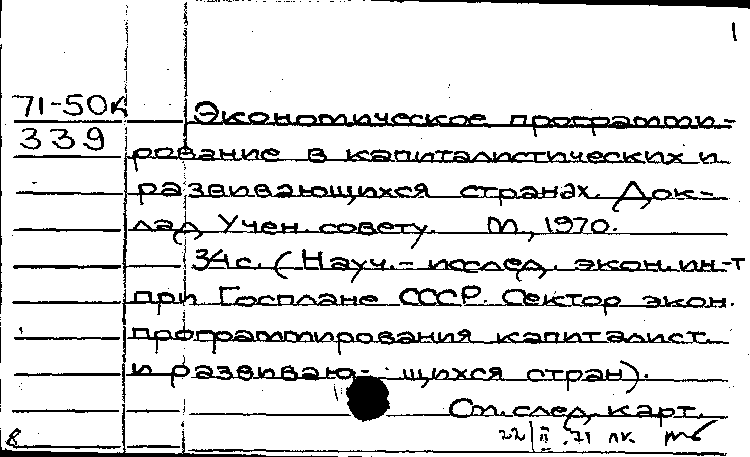 1
71-50к
339
Экономическое программи-
рование в капиталистических и
развивающихся странах. Док-
лад Учен. совету. М., 1970.
34с. (Науч.- исслед. экон. ин-т
при Госплане СССР. Сектор экон.
программирования капиталист.
и развиваю- щихся стран).
См. след. карт.
8 22/II.71 лк.